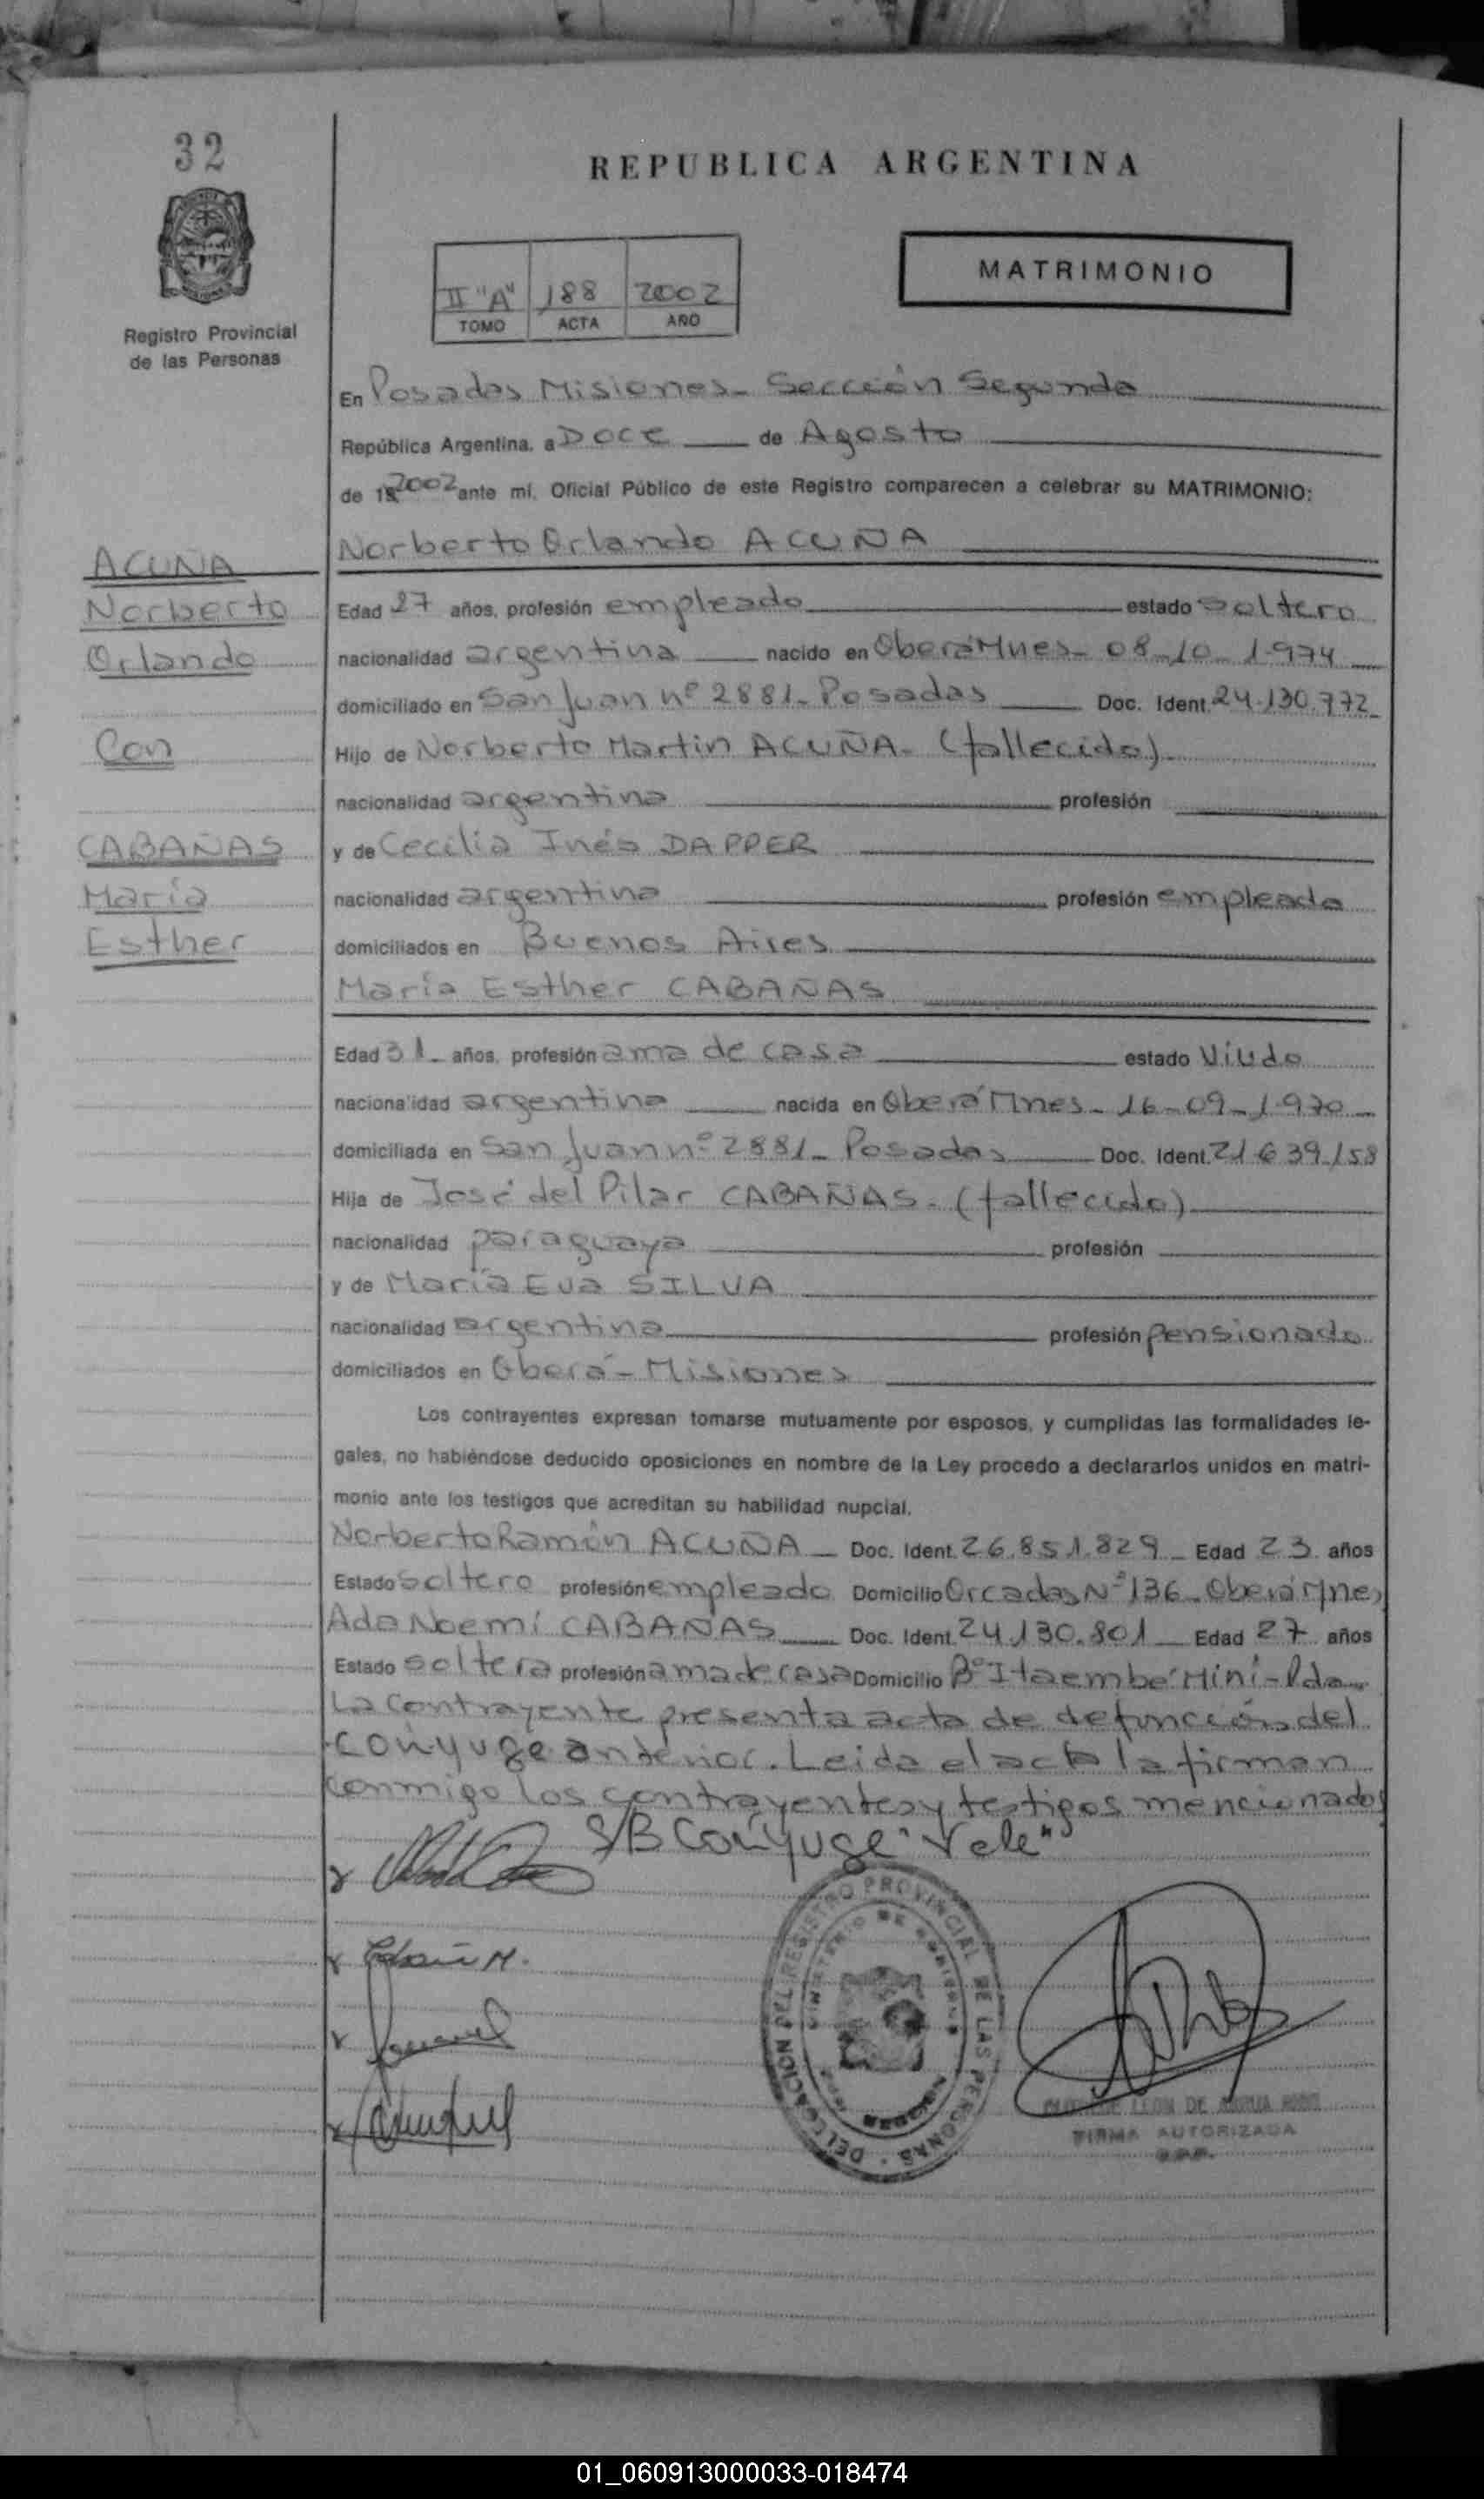 32
REPUBLICA ARGENTINA
Registro Provincial
de las Personas
II "A" 188 2002
TOMO ACTA AÑO
MATRIMONIO
En Posadas Misiones - Sección Segunda
República Argentina, a Doce de Agosto
de 19 2002 ante mí, Oficial Público de este Registro comparecen a celebrar su MATRIMONIO:
Norberto Orlando ACUÑA
ACUÑA
Norberto
Orlando
Con
CABAÑAS
María
Esther
Edad 27 años, profesión empleado estado soltero
nacionalidad argentina nacido en Oberá Mnes - 08-10-1.974
domiciliado en San Juan nº 2881 - Posadas Doc. Ident. 24.130.772
Hijo de Norberto Martin ACUÑA - (fallecido)
nacionalidad argentina profesión
y de Cecilia Inés DAPPER
nacionalidad argentina profesión empleada
domiciliados en Buenos Aires
María Esther CABAÑAS
Edad 31 años, profesión ama de casa estado Viuda
nacionalidad argentina nacida en Oberá Mnes - 16-09-1.970
domiciliada en San Juan nº 2881 - Posadas Doc. Ident. 21.639.158
Hija de José del Pilar CABAÑAS - (fallecido)
nacionalidad paraguaya profesión
y de María Eva SILVA
nacionalidad argentina profesión Pensionada
domiciliados en Oberá - Misiones
Los contrayentes expresan tomarse mutuamente por esposos, y cumplidas las formalidades le-
gales, no habiéndose deducido oposiciones en nombre de la Ley procedo a declararlos unidos en matri-
monio ante los testigos que acreditan su habilidad nupcial.
Norberto Ramón ACUÑA Doc. Ident. 26.851.829 Edad 23 años
Estado soltero profesión empleado Domicilio Orcadas Nº 136 - Oberá Mnes
Ada Noemí CABAÑAS Doc. Ident. 24.130.801 Edad 27 años
Estado soltera profesión ama de casa Domicilio Bº Itaembé Miní - Pdas
La contrayente presenta acta de defunción del
conyuge anterior. Leida el acta la firman
conmigo los contrayentes y testigos mencionados
S/B Conyuge "Vale"
DELEGACION DEL REGISTRO PROVINCIAL DE LAS PERSONAS
MINISTERIO DE GOBIERNO
LEON DE
FIRMA AUTORIZADA
01_060913000033-018474